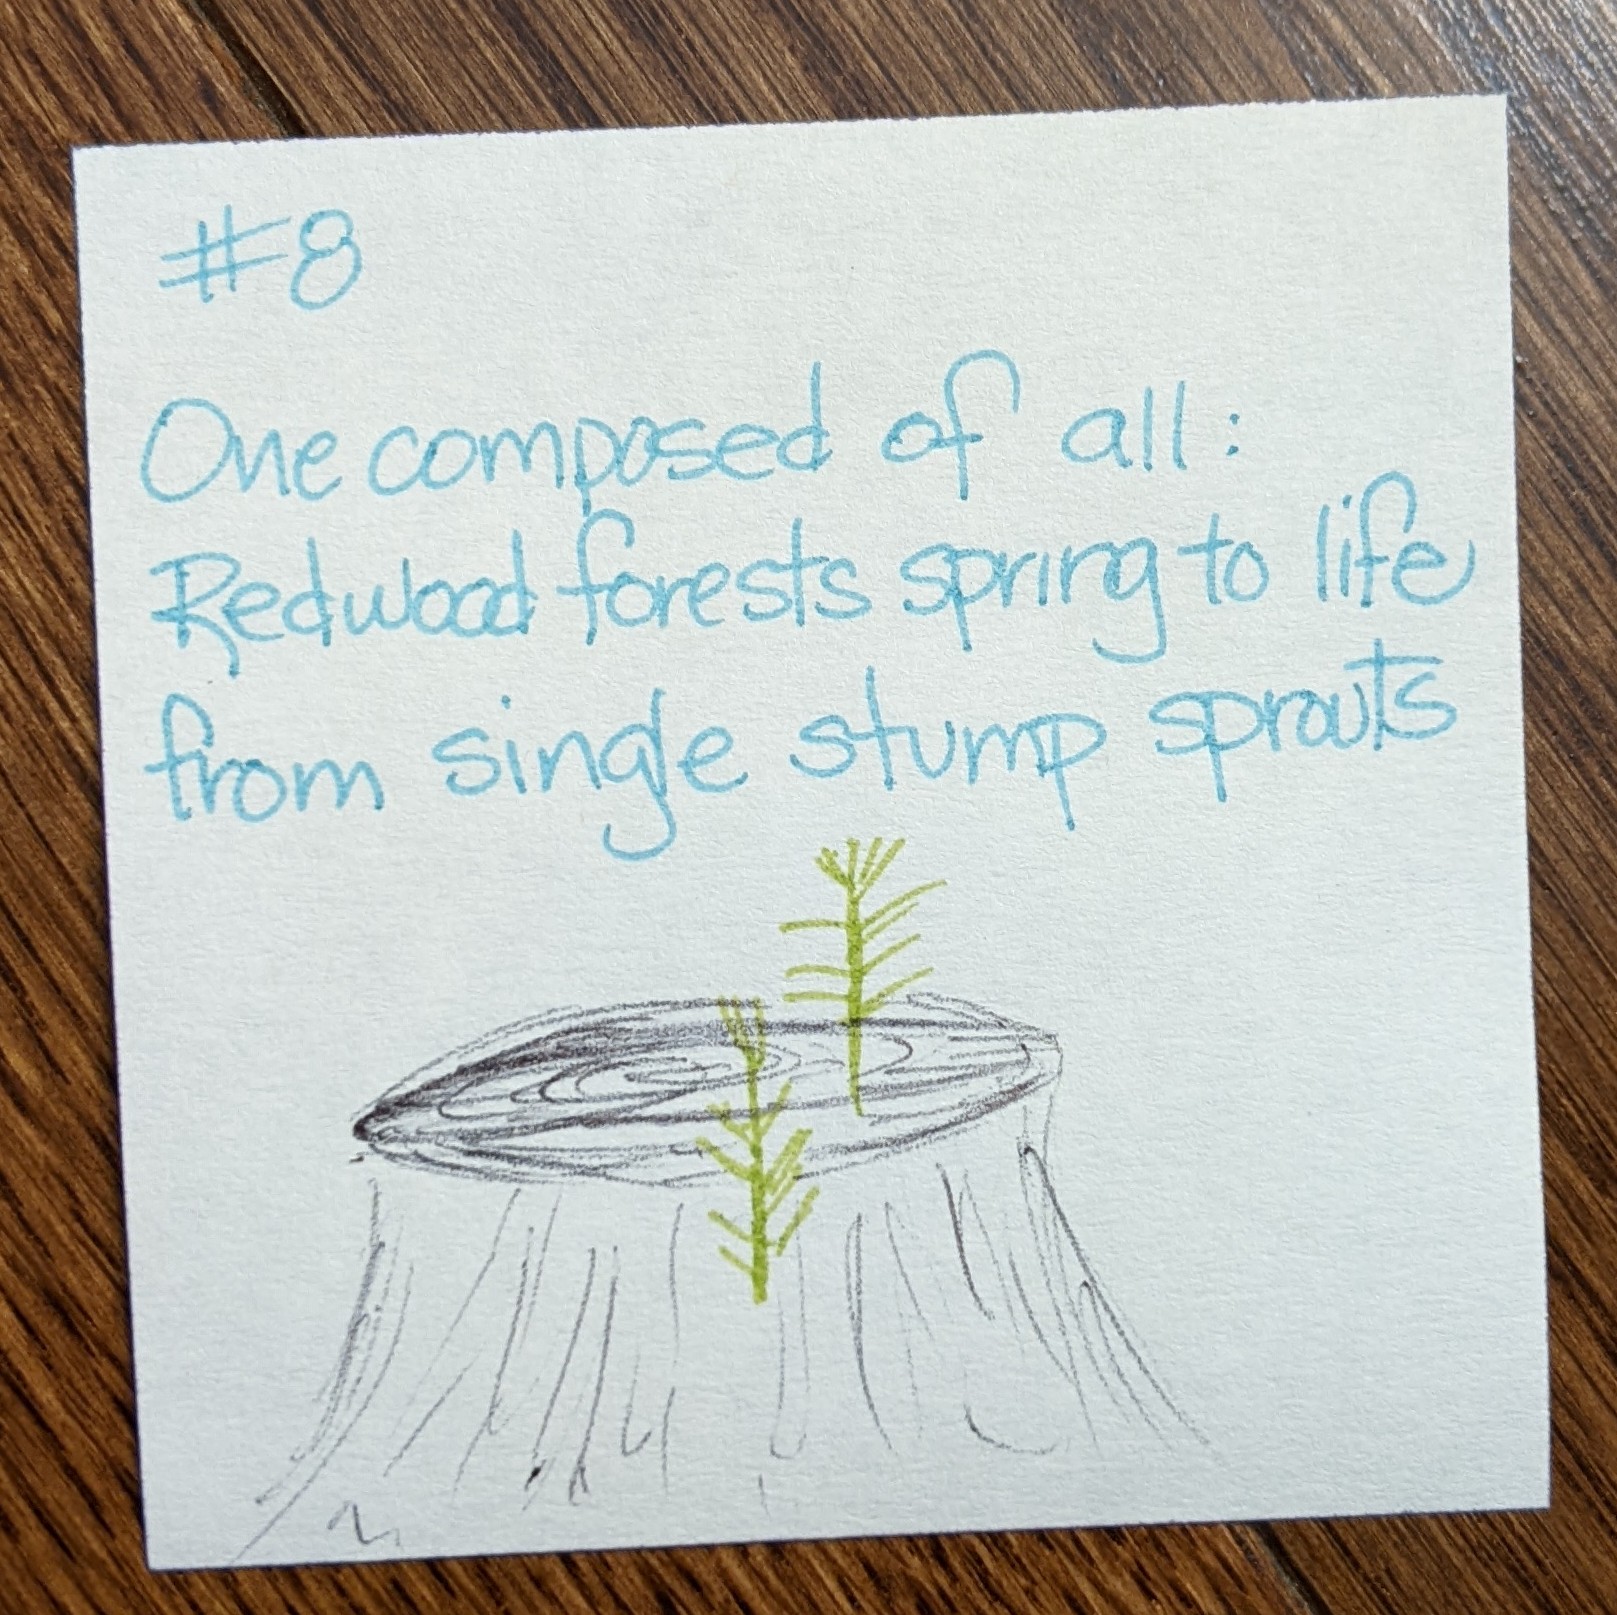 #8
One composed of all:
Redwood forests spring to life
from single stump sprouts